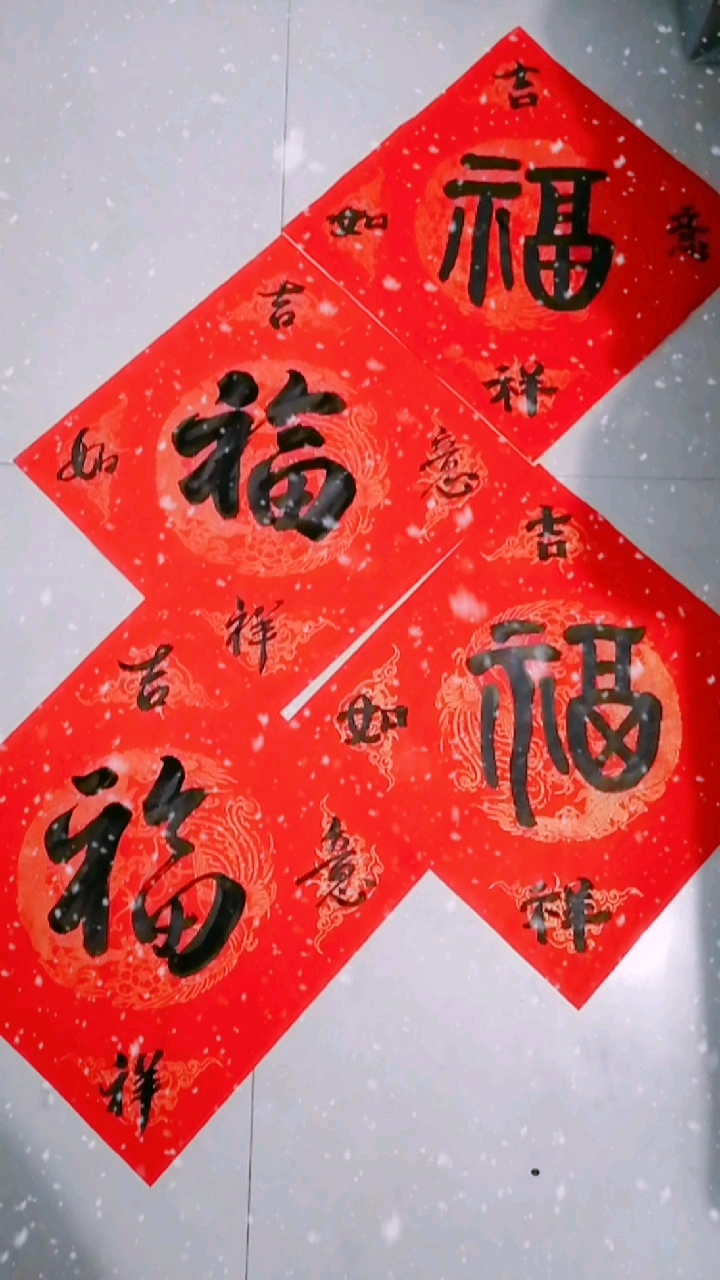 吉
如 福 意
祥
吉
如 福 意
祥
吉
如 福
祥
吉
福 意
祥